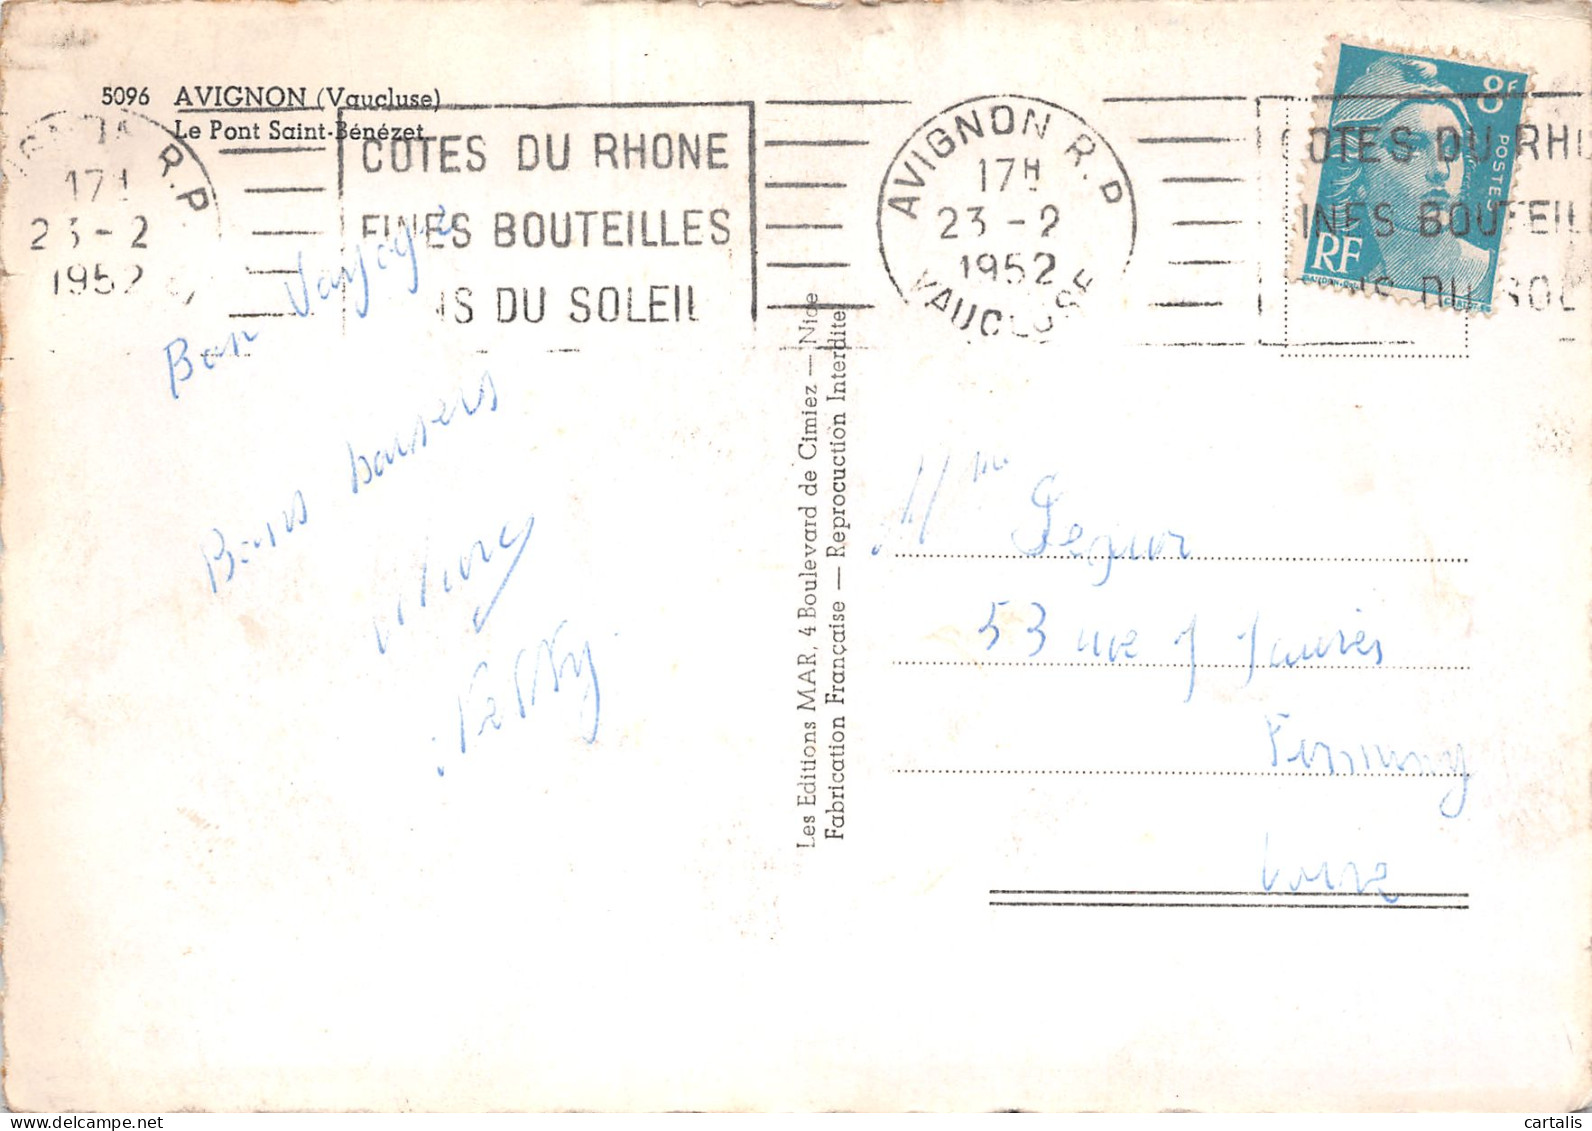 5096 AVIGNON (Vaucluse)
Le Pont Saint-Bénézet
R.P
17H
23-2
1952
COTES DU RHONE
FINES BOUTEILLES
NS DU SOLEIL
AVIGNON R.P
17H
23-2
1952
VAUCLUSE
OTES DU RHO
INES BOUTEIL
NS DU SOL
8F
POSTES
RF
Bon Voyage
Bons baisers
Les Editions MAR, 4 Boulevard de Cimiez — Nice
Fabrication Française — Reprocuction Interdite
Mme Segur
53 rue J Jaurès